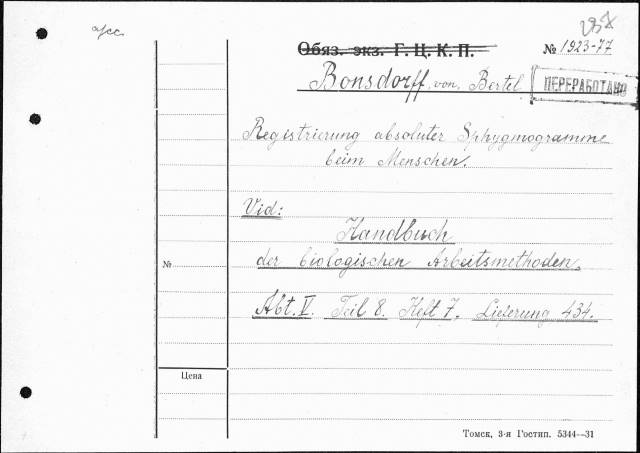 дисс.
Обяз. экз. Г. Ц. К. П.
№ 1923-77
Bonsdorff, von, Bertel
ПЕРЕРАБОТАНО
Registrierung absoluter Sphygmogramme
beim Menschen.
Vid:
Handbuch
der biologischen Arbeitsmethoden,
Abt. V. Teil 8. Heft 7. Lieferung 434.
№
Цена
Томск, 3-я Гостип. 5344—31